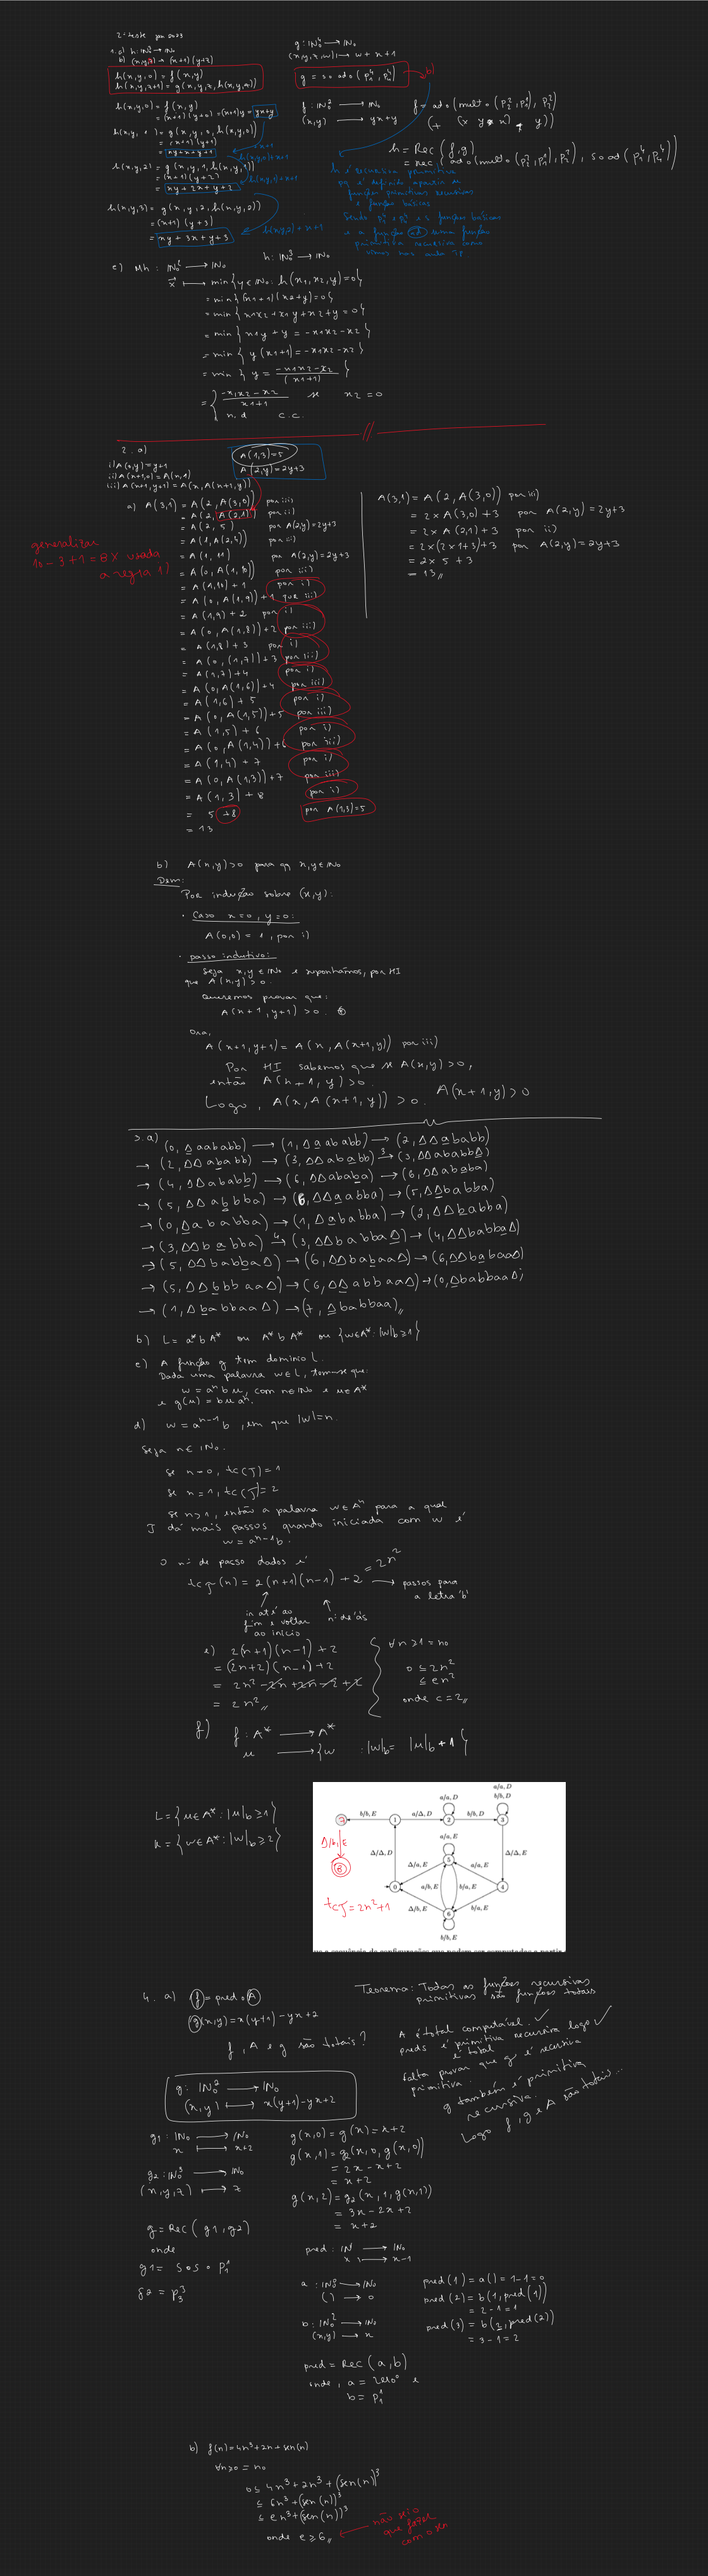 2º teste jan 2023
1. a) h: IN₀³ → IN₀
b) (x,y,z) → (x+1)(y+z)
h(x,y,0) = f(x,y)
h(x,y,z+1) = g(x,y,z,h(x,y,z))
h(x,y,0) = f(x,y)
= (x+1)(y+0) = (x+1)y = yx+y
h(x,y,1) = g(x,y,0,h(x,y,0))
= (x+1)(y+1)
= xy+x+y+1
h(x,y,0)+x+1
h(x,y,2) = g(x,y,1,h(x,y,1))
= (x+1)(y+2)
= xy+2x+y+2
h(x,y,1)+x+1
h(x,y,3) = g(x,y,2,h(x,y,2))
= (x+1)(y+3)
= xy+3x+y+3
h(x,y,2)+x+1
g: IN₀⁴ → IN₀
(x,y,z,w) → w+x+1
g = s o ad o (p₁⁴, p₄⁴)
b)
f: IN₀² → IN₀
(x,y) → yx+y
f = ad o (mult o (p₂², p₁²), p₂²)
h = Rec(f,g)
= rec(ad o (mult o (p₂², p₁²), p₂²), s o ad o (p₁⁴, p₄⁴))
h é recursiva primitiva
pq é definida apartir de
funções primitivas recursivas
e funções básicas
e a função ad é uma função
primitiva recursiva como
vimos nas aulas TP.
c) Mh: IN₀² → IN₀
h: IN₀³ → IN₀
x⃗ ↦ min{y ∈ IN₀: h(x1,x2,y)=0}
= min{(x1+1)(x2+y)=0}
= min{x1x2+x1y+x2+y=0}
= min{x1y+y = -x1x2-x2}
= min{y(x1+1) = -x1x2-x2}
= min{y = (-x1x2-x2)/(x1+1)}
= { (-x1x2-x2)/(x1+1) se x2=0
n.d c.c.
2. a)
A(1,3)=5
A(2,y)=2y+3
i) A(0,y)=y+1
ii) A(x+1,0)=A(x,1)
iii) A(x+1,y+1)=A(x,A(x+1,y))
a) A(3,1) = A(2,A(3,0)) por iii)
= A(2,A(2,1)) por ii)
= A(2,5) por A(2,y)=2y+3
= A(1,A(2,4)) por iii)
= A(1,11) por A(2,y)=2y+3
= A(0,A(1,10)) por iii)
= A(1,10)+1 por i)
= A(0,A(1,9))+1 por iii)
= A(1,9)+2 por i)
= A(0,A(1,8))+2 por iii)
= A(1,8)+3 por i)
= A(0,(1,7))+3 por iii)
= A(1,7)+4 por i)
= A(0,A(1,6))+4 por iii)
= A(1,6)+5 por i)
= A(0,A(1,5))+5 por iii)
= A(1,5)+6 por i)
= A(0,A(1,4))+6 por iii)
= A(1,4)+7 por i)
= A(0,A(1,3))+7 por iii)
= A(1,3)+8 por i)
= 5+8 por A(1,3)=5
= 13
generalizar
10-3+1=8x usada
a regra i)
A(3,1) = A(2,A(3,0)) por iii)
= 2×A(3,0)+3 por A(2,y)=2y+3
= 2×A(2,1)+3 por ii)
= 2×(2×1+3)+3 por A(2,y)=2y+3
= 2×5+3
= 13,,
b) A(x,y)>0 para qq x,y∈IN₀
Dem:
Por indução sobre (x,y):
• Caso x=0, y=0:
A(0,0)=1, por i)
• passo indutivo:
Seja x,y ∈ IN₀ e suponhamos, por HI
que A(x,y)>0.
Queremos provar que:
A(x+1,y+1)>0.
Ora,
A(x+1,y+1)=A(x,A(x+1,y)) por iii)
Por HI sabemos que se A(x,y)>0,
então A(x+1,y)>0.
Logo, A(x,A(x+1,y))>0. A(x+1,y)>0
3. a)
(0,Δaababb) → (1,Δaababb) → (2,ΔΔababb)
→ (2,ΔΔababb) → (3,ΔΔababb) →³ (3,ΔΔababbΔ)
→ (4,ΔΔababb) → (6,ΔΔababa) → (6,ΔΔababa)
→ (5,ΔΔabbba) → (6,ΔΔaabba) → (5,ΔΔbabba)
→ (0,Δababba) → (1,Δababba) → (2,ΔΔbabba)
→ (3,ΔΔbabba) →⁴ (3,ΔΔbabbaΔ) → (4,ΔΔbabbaΔ)
→ (5,ΔΔbabbaΔ) → (6,ΔΔbabaaΔ) → (6,ΔΔbabaaΔ)
→ (5,ΔΔbbbaaΔ) → (6,ΔΔabbaaΔ) → (0,ΔbabbaaΔ)
→ (1,ΔbabbaaΔ) → (7,Δbabbaa),,
b) L = a*bA* ou A*bA* ou {w∈A*: |w|b≥1}
c) A função g tem domínio L.
Dada uma palavra w∈L, tem-se que:
w = aⁿbu, com n∈IN₀ e u∈A*
e g(u) = buaⁿ.
d) w = aⁿ⁻¹b, em que |w|=n.
Seja n∈IN₀.
se n=0, tcJ=1
se n=1, tc(J)=2
se n>1, então a palavra w∈Aⁿ para a qual
J dá mais passos quando iniciada com w é
w = aⁿ⁻¹b.
O nº de passo dados é
tcJ(n) = 2(n+1)(n-1)+2 = 2n²
→ passos para
a letra 'b'
ir até ao
fim e voltar
ao início
nº de a's
e) 2(n+1)(n-1)+2
= (2n+2)(n-1)+2
= 2n²-2n+2n-2+2
= 2n²,,
∀n≥1=n₀
0≤2n²
≤cn²
onde c=2,,
f) f: A* → A*
u → {w : |w|b = |u|b+1}
L = {u∈A*: |u|b≥1}
K = {w∈A*: |w|b≥2}
a/a, D
a/a, D
b/b, D
b/b, E
1
a/Δ, D
2
b/b, D
3
7
Δ/b, E
8
Δ/Δ, D
a/a, E
5
Δ/Δ, E
Δ/a, E
a/a, E
0
a/b, E
b/a, E
4
Δ/b, E
6
b/a, E
b/b, E
tcJ=2n²+1
4. a) f = pred o A
g(x,y)=x(y+1)-yx+2
f, A e g são totais?
Teorema: Todas as funções recursivas
primitivas são funções totais
A é total computável. ✓
preds é primitiva recursiva logo ✓
é total
falta provar que g é recursiva
primitiva.
g também é primitiva
recursiva.
Logo f, g e A são totais...
g: IN₀² → IN₀
(x,y) ↦ x(y+1)-yx+2
g1: IN₀ → IN₀
x ↦ x+2
g2: IN₀³ → IN₀
(x,y,z) ↦ z
g = Rec(g1,g2)
onde
g1 = s o s o p₁¹
g2 = p₃³
g(x,0)=g(x)=x+2
g(x,1)=g2(x,0,g(x,0))
= 2x-x+2
= x+2
g(x,2)=g2(x,1,g(x,1))
= 3x-2x+2
= x+2
pred: IN → IN₀
x ↦ x-1
a: IN₀⁰ → IN₀
() → 0
b: IN₀² → IN₀
(x,y) → x
pred(1)=a()=1-1=0
pred(2)=b(1,pred(1))
=2-1=1
pred(3)=b(2,pred(2))
=3-1=2
pred = Rec(a,b)
onde, a = zero⁰ e
b = p₁²
b) f(n)=4n³+2n+sen(n)
∀n≥0=n₀
0≤4n³+2n³+(sen(n))³
≤6n³+(sen(n))³
≤cn³+(sen(n))³
onde c≥6,,
não sei o
que fazer
com o sen